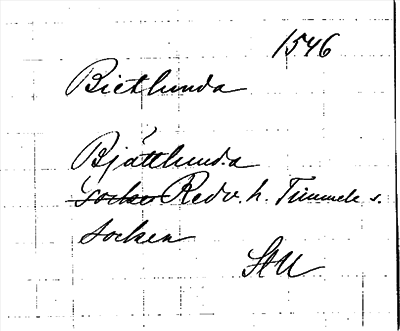 1546
Bietlunda
Bjättlunda
socken Redv. h. Timmele s.
socken
StU